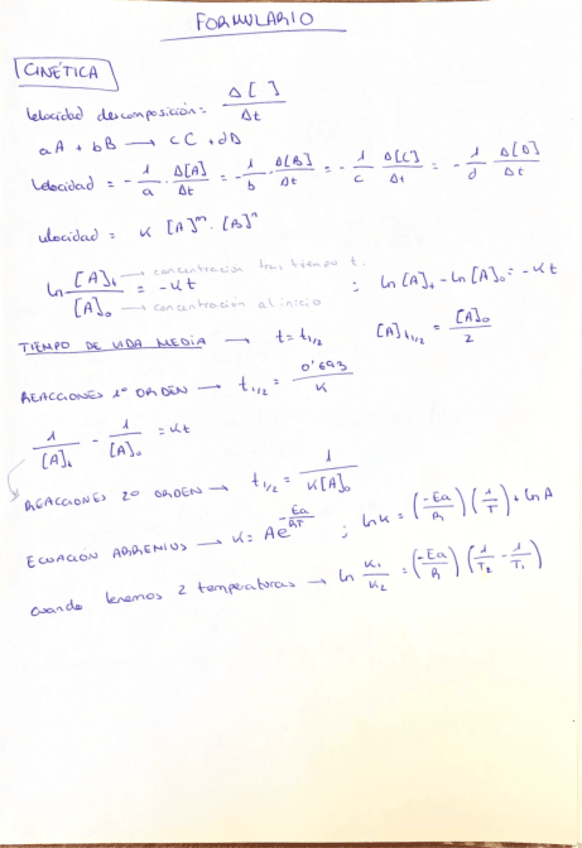 FORMULARIO
CINÉTICA
Velocidad descomposición = Δ[ ] / Δt
aA + bB → cC + dD
Velocidad = - 1/a · Δ[A]/Δt = - 1/b Δ[B]/Δt = - 1/c Δ[C]/Δt = - 1/d Δ[D]/Δt
velocidad = K [A]ᵐ · [B]ⁿ
ln [A]t / [A]o = -Kt ; ln [A]t - ln [A]o = -Kt
→ concentración tras tiempo t.
→ concentración al inicio
TIEMPO DE VIDA MEDIA → t = t1/2 [A]t1/2 = [A]o / 2
REACCIONES 1º ORDEN → t1/2 = 0'693 / K
1/[A]t - 1/[A]o = Kt
REACCIONES 2º ORDEN → t1/2 = 1 / K[A]o
ECUACIÓN ARRENIUS → K = Ae^(-Ea/RT) ; ln K = (-Ea/R) (1/T) + ln A
cuando tenemos 2 temperaturas → ln K1/K2 = (-Ea/R) (1/T2 - 1/T1)